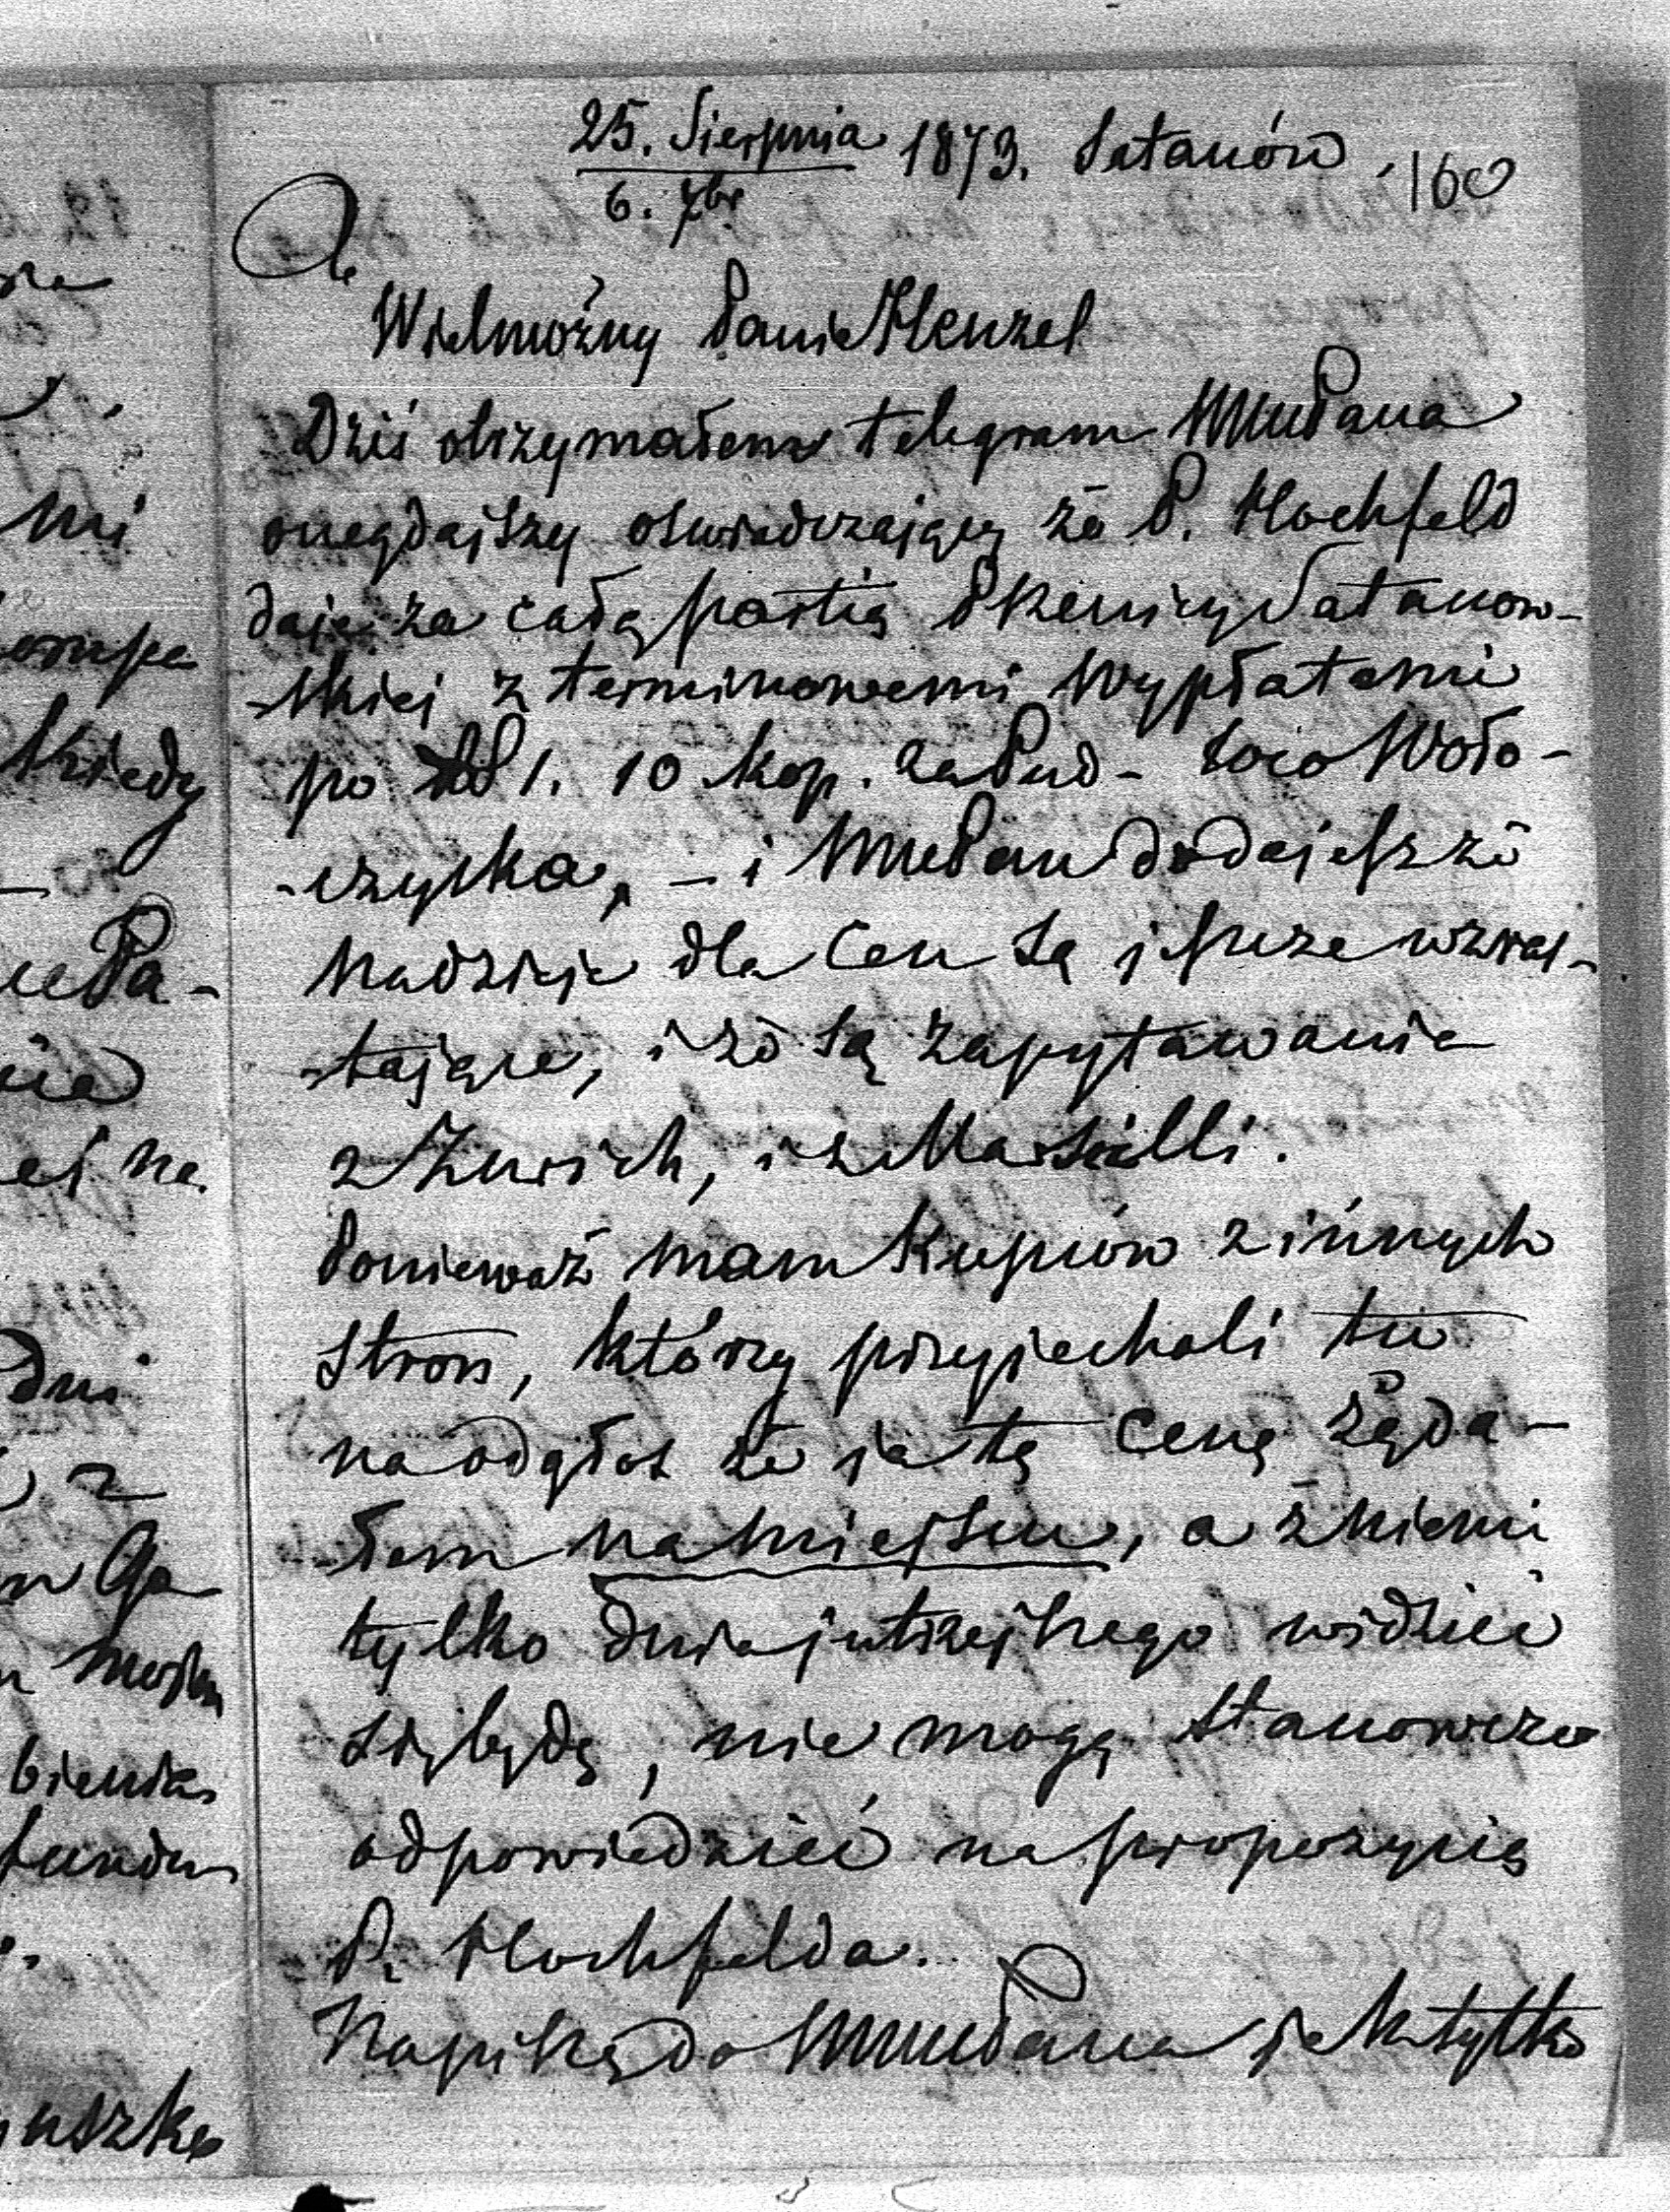 25. Sierpnia 1873. Satanów. 160
6. 7br
Wielmożny Panie Henzel
Dziś otrzymałem telegram WMuPana
onegdajszy oswiadczający że P. Hochfeld
daje za całą partią Pszenicy Satanow-
-skiej z terminowemi wypłatami
po 1. 10 kop. za Pud - Loco Woło-
-czyska, - i WMuPan dodajesz że
Nadzieje dla Cen są jeszcze wzras-
-tające, i że są zapytawania
z Zurich, i z Marseilli.
Ponieważ mam Kupców z innych
stron, którzy przyjechali tu
na odgłos że ja tę cenę żąda-
-łem na miejscu, a z niemi
tylko dnia jutrzejszego widzieć
się będę, nie mogę stanowczo
odpowiedzieć na propozycię
P. Hochfelda.
Napiszę do WMuPana jak tylko
mi
Kiedy
uePa-
ej na
dni
z
w Ga
bienia
uszkę